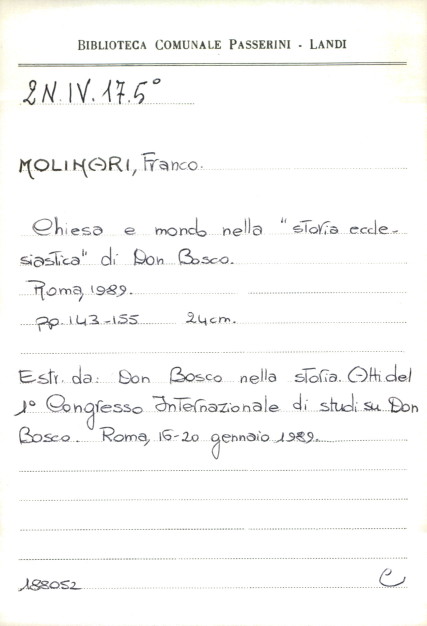 BIBLIOTECA COMUNALE PASSERINI - LANDI
2N.IV.17.5°
MOLINARI, Franco.
Chiesa e mondo nella "storia eccle-
siastica" di Don Bosco.
Roma, 1989.
pp. 143-155 24cm.
Estr. da: Don Bosco nella storia. Atti del
1° Congresso Internazionale di studi su Don
Bosco. Roma, 16-20 gennaio 1989.
188052 C